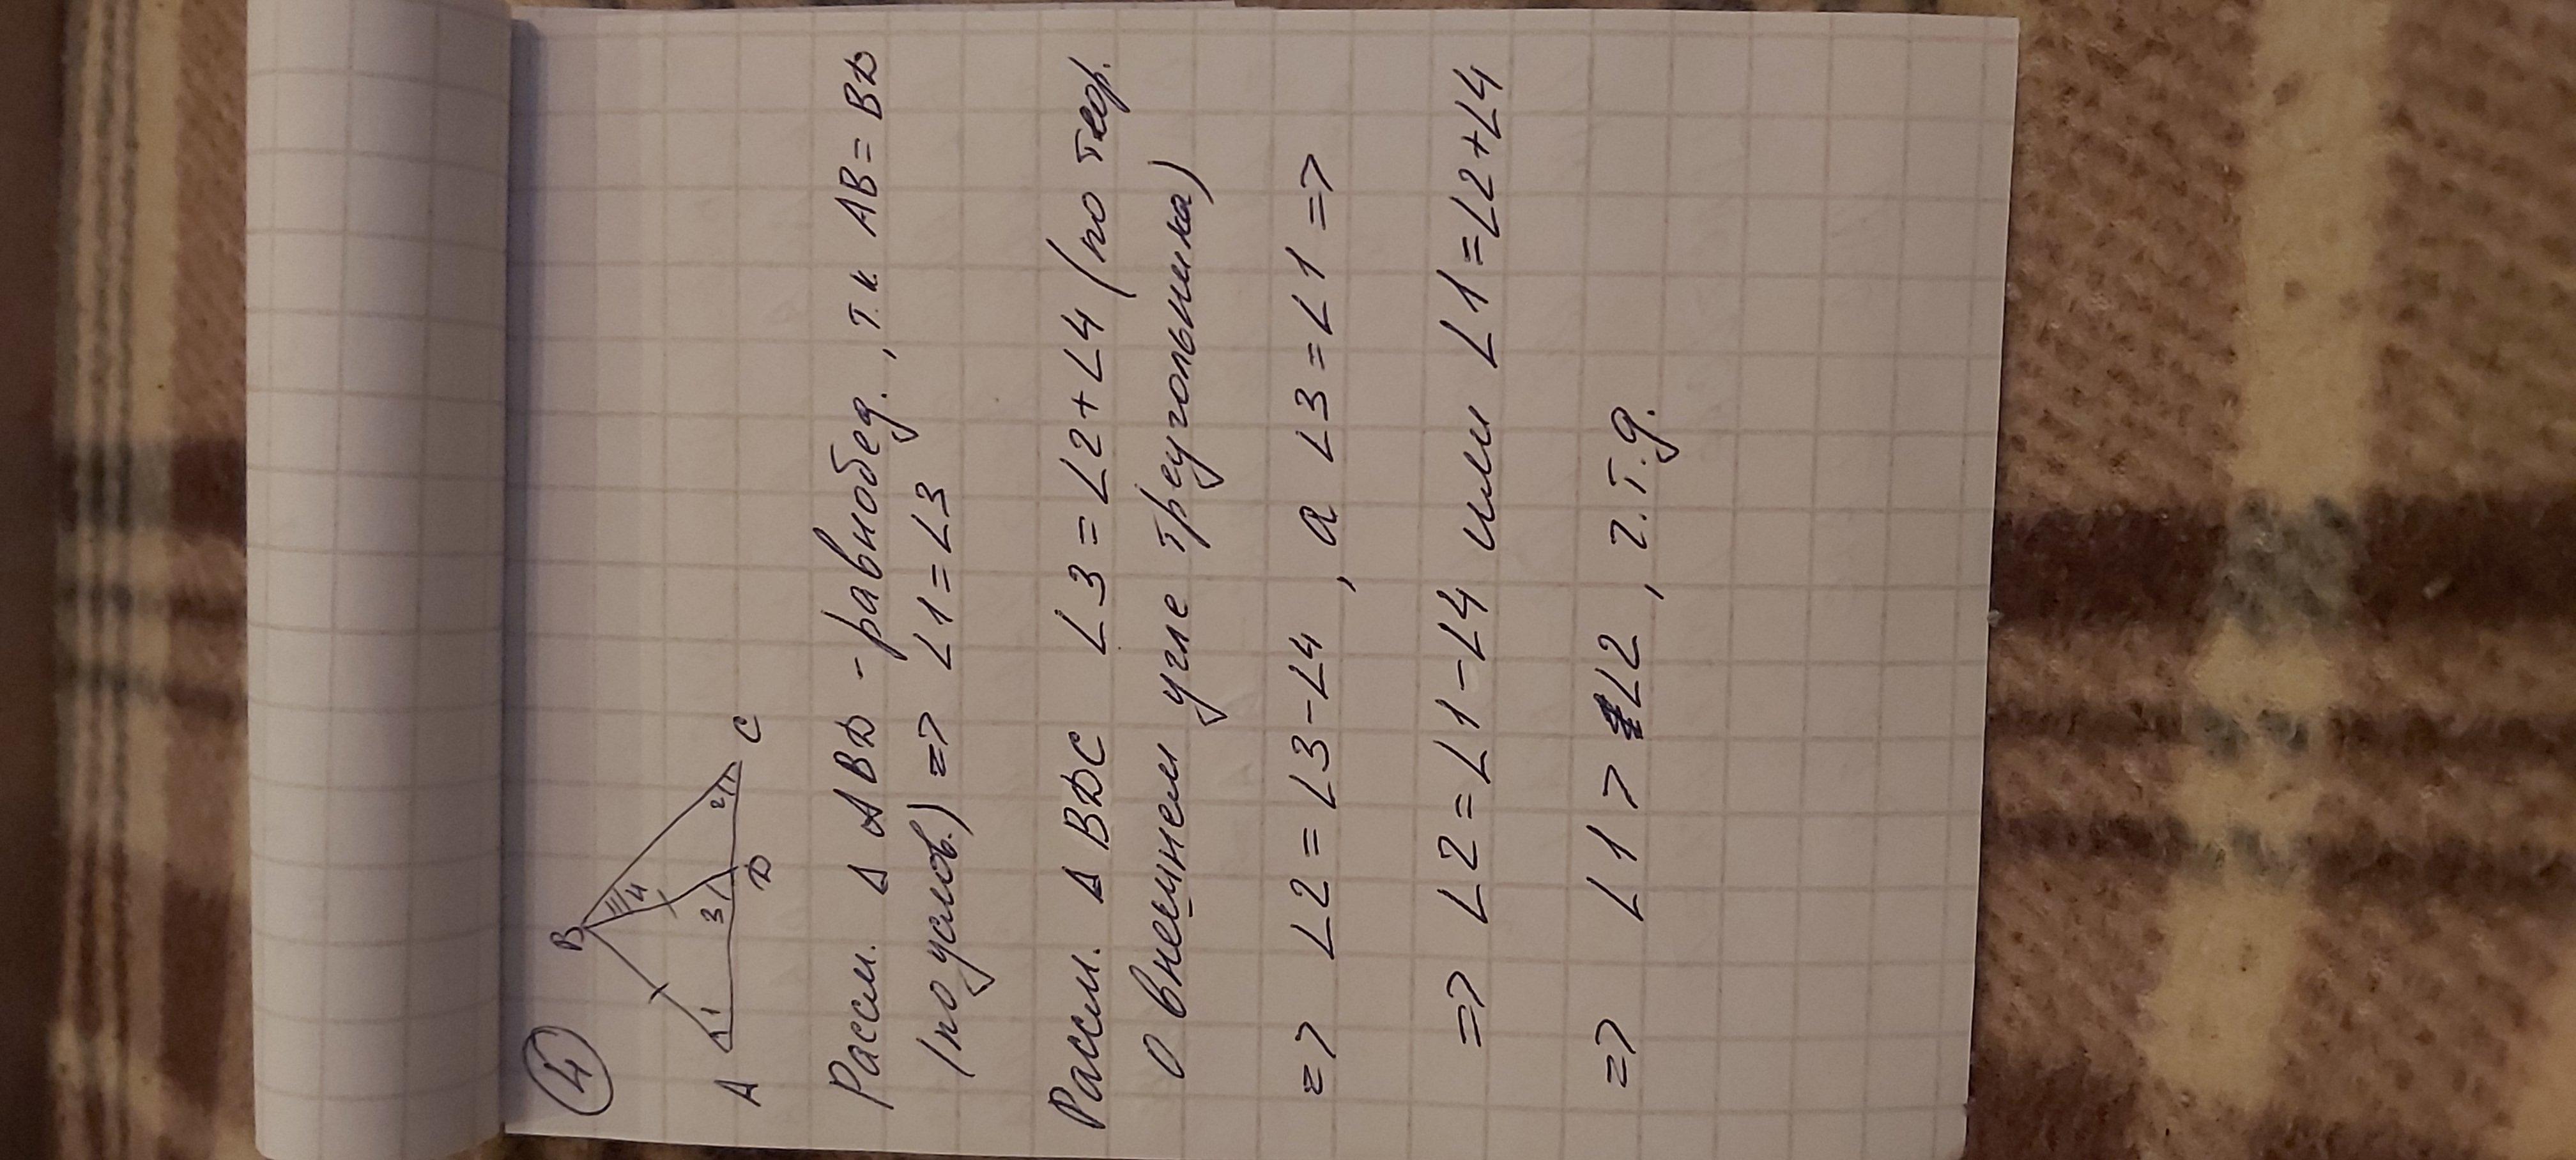 4
B
4
1
3
2
A
D
C
Рассм. Δ ABD - равнобед., т.к AB = BD
(по услов.) => ∠1 = ∠3
Рассм. Δ BDC ∠3 = ∠2 + ∠4 (по теор.
о внешнем угле треугольника)
=> ∠2 = ∠3 - ∠4 , а ∠3 = ∠1 =>
=> ∠2 = ∠1 - ∠4 или ∠1 = ∠2 + ∠4
=> ∠1 > ∠2 , ч.т.д.